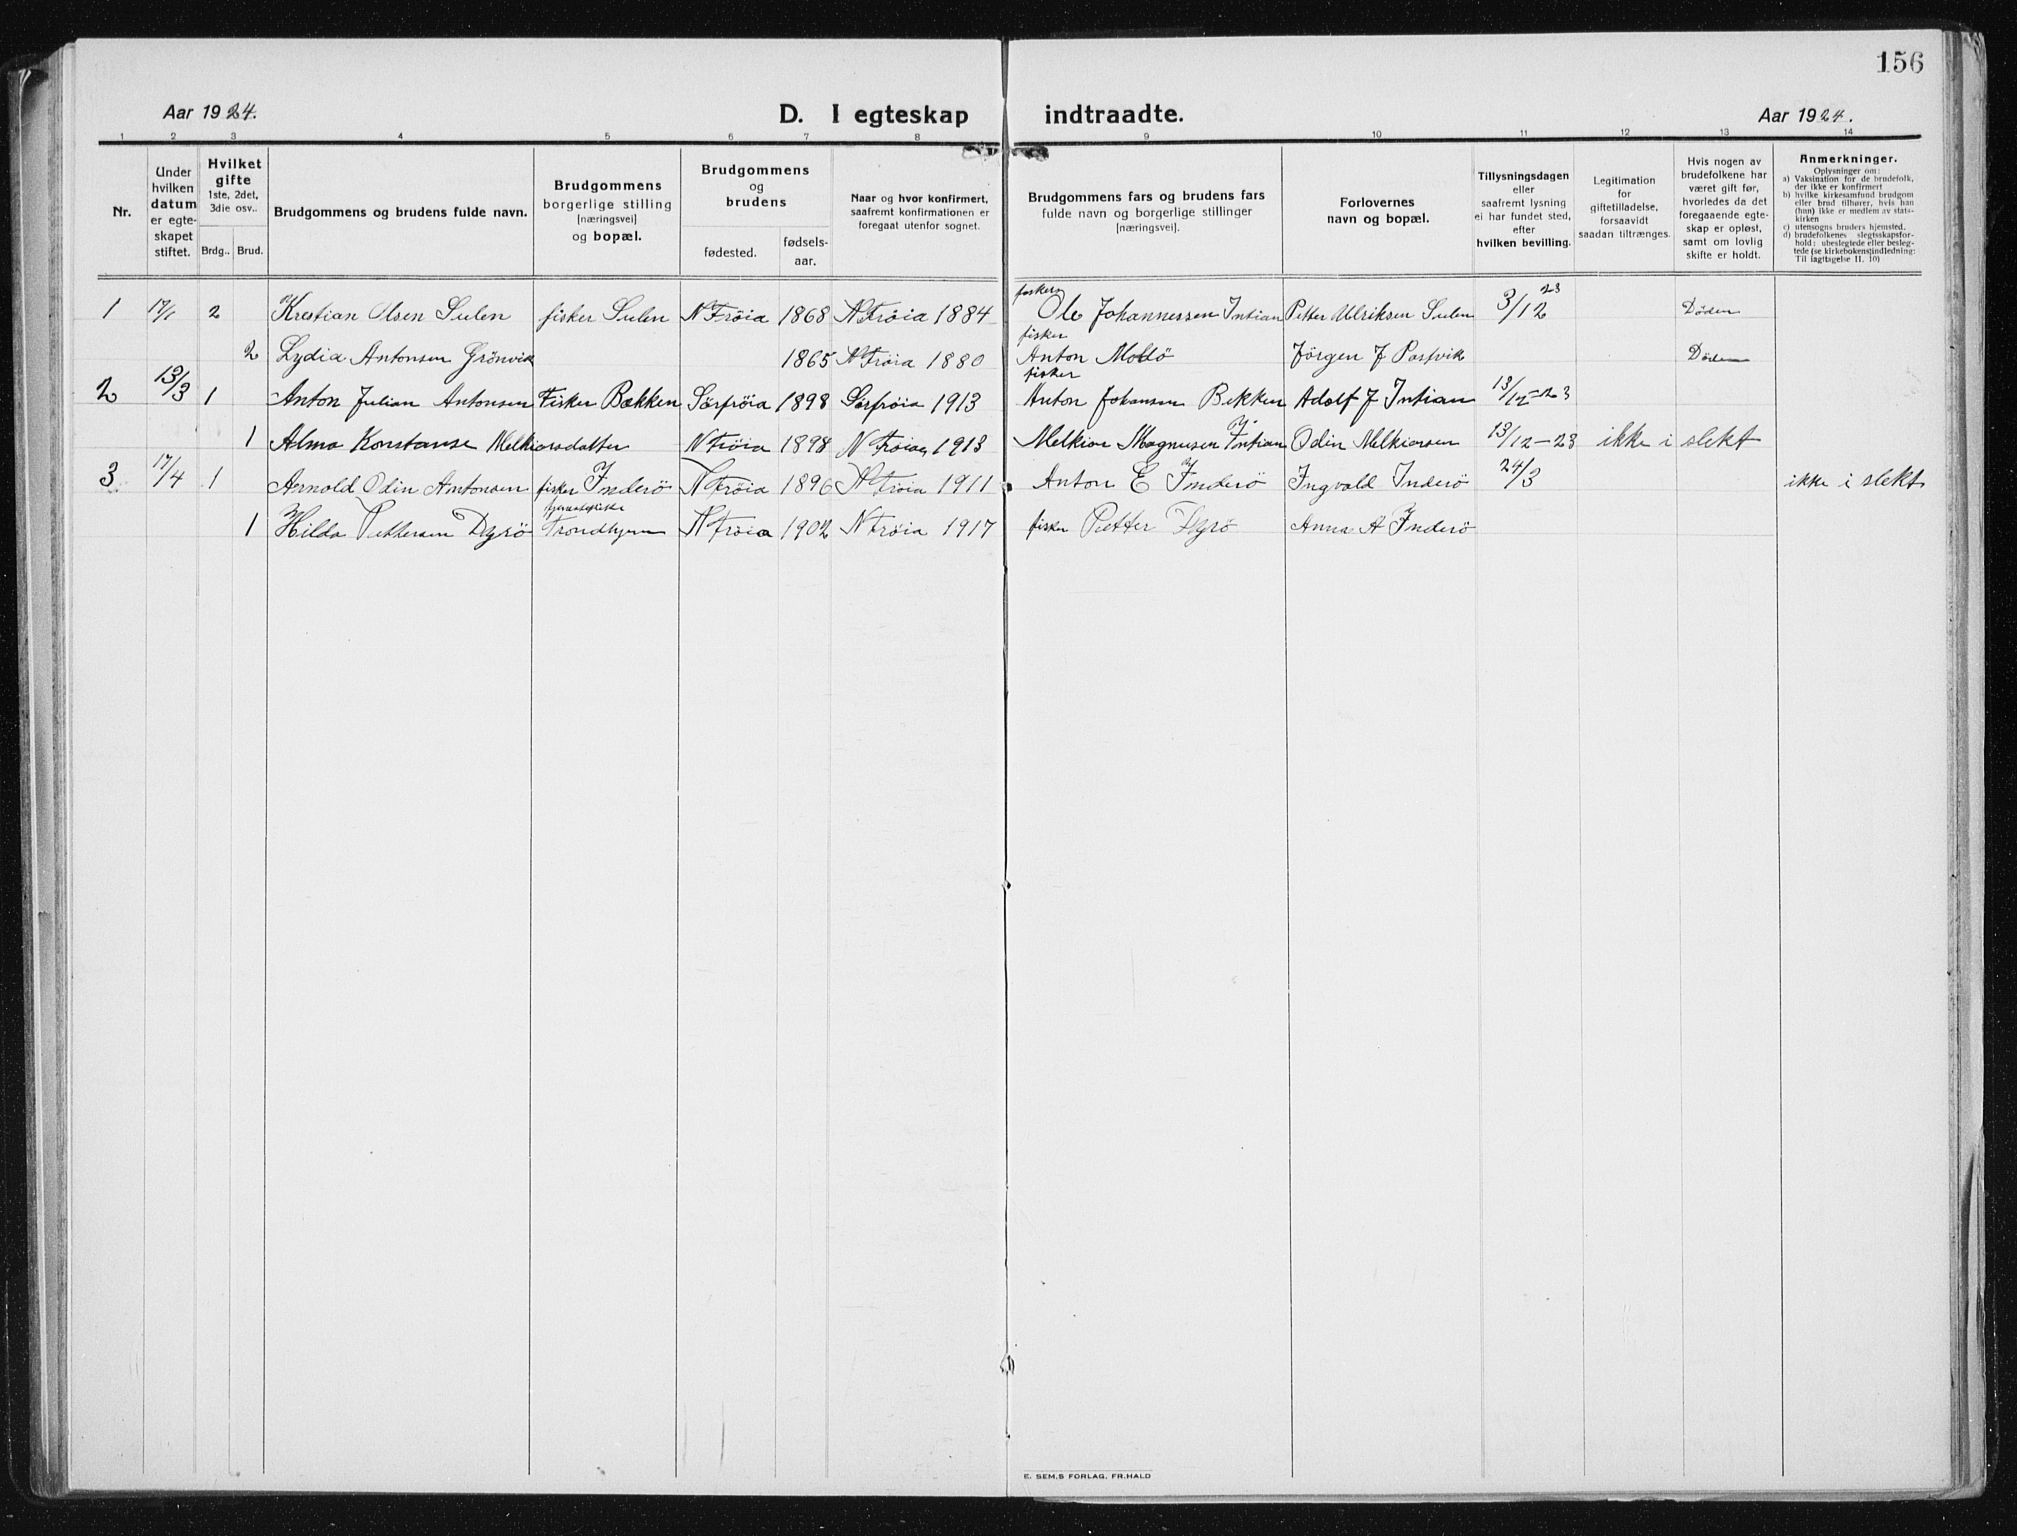 156
Aar 1924.
D. I egteskap indtraadte.
Aar 1924.
1 2 3 4 5 6 7 8 9 10 11 12 13 14
Nr.
Under hvilken datum er egte-skapet stiftet.
Hvilket gifte 1ste, 2det, 3die osv..
Brdg.. Brud.
Brudgommens og brudens fulde navn.
Brudgommens borgerlige stilling [næringsvei] og bopæl.
Brudgommens og brudens
fødested. fødsels-aar.
Naar og hvor konfirmert, saafremt konfirmationen er foregaat utenfor sognet.
Brudgommens fars og brudens fars fulde navn og borgerlige stillinger [næringsvei].
Forlovernes navn og bopæl.
Tillysningsdagen eller saafremt lysning ei har fundet sted, efter hvilken bevilling.
Legitimation for giftetilladelse, forsaavidt saadan tiltrænges.
Hvis nogen av brudefolkene har været gift før, hvorledes da det foregaaende egte-skap er opløst, samt om lovlig skifte er holdt.
Anmerkninger.
Oplysninger om:
a) Vaksination for de brudefolk, der ikke er konfirmert
b) hvilke kirkesamfund brudgom eller brud tilhører, hvis han (han) ikke er medlem av stats-kirken
c) utensogns bruders hjemsted.
d) brudefolkenes slegtsskapsfor-hold: ubeslegtede eller besleg-tede (se kirkebokensindledning: Til iagttagelse II. 10)
1 17/1 2 Krestian Olsen Sulen fisker Sulen N Frøia 1868 N Frøia 1884 fisker Ole Johannessen Intian Petter Ulriksen Sulen 3/12 23 Døden
2 Lydia Antonsen Grönvik 1865 N Frøia 1880 fisker Anton Moldö Jörgen J Døden
2 13/3 1 Anton Julian Antonsen Fisker Bekken Sörfröia 1898 Sörfröia 1913 fisker Anton Johansen Bekken Adolf J Intian 13/12-23
1 Alma Konstanse Melkiorsdatter N Fröia 1898 N Fröia 1913 Melkior Magnusen Y. Intian Odin Melkiorsen 13/12-23 ikke i slekt
3 17/4 1 Arnold Odin Antonsen fisker Inderö N Fröia 1896 N Fröia 1911 Anton E Inderö Ingvald Inderö 24/3 ikke i slekt
1 Hilda Pettersen Dyrö Trondhjem N Fröia 1902 N Fröia 1917 fisker Petter Dyrö Anna A Inderö
E. SEM.S FORLAG, FR.HALD